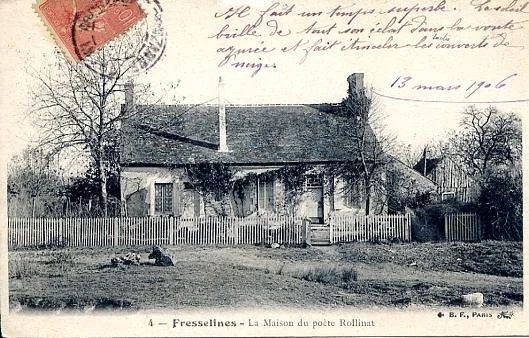 Il fait un temps superbe. Le soleil
brille de tout son éclat dans la voûte
azurée et fait étinceler les toits couverts de
neige.
13 mars 1906
10
4 — Fresselines - La Maison du poète Rollinat
B. F., PARIS